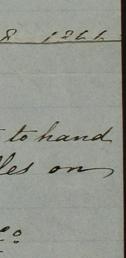 8 1861
to hand
les on
Co